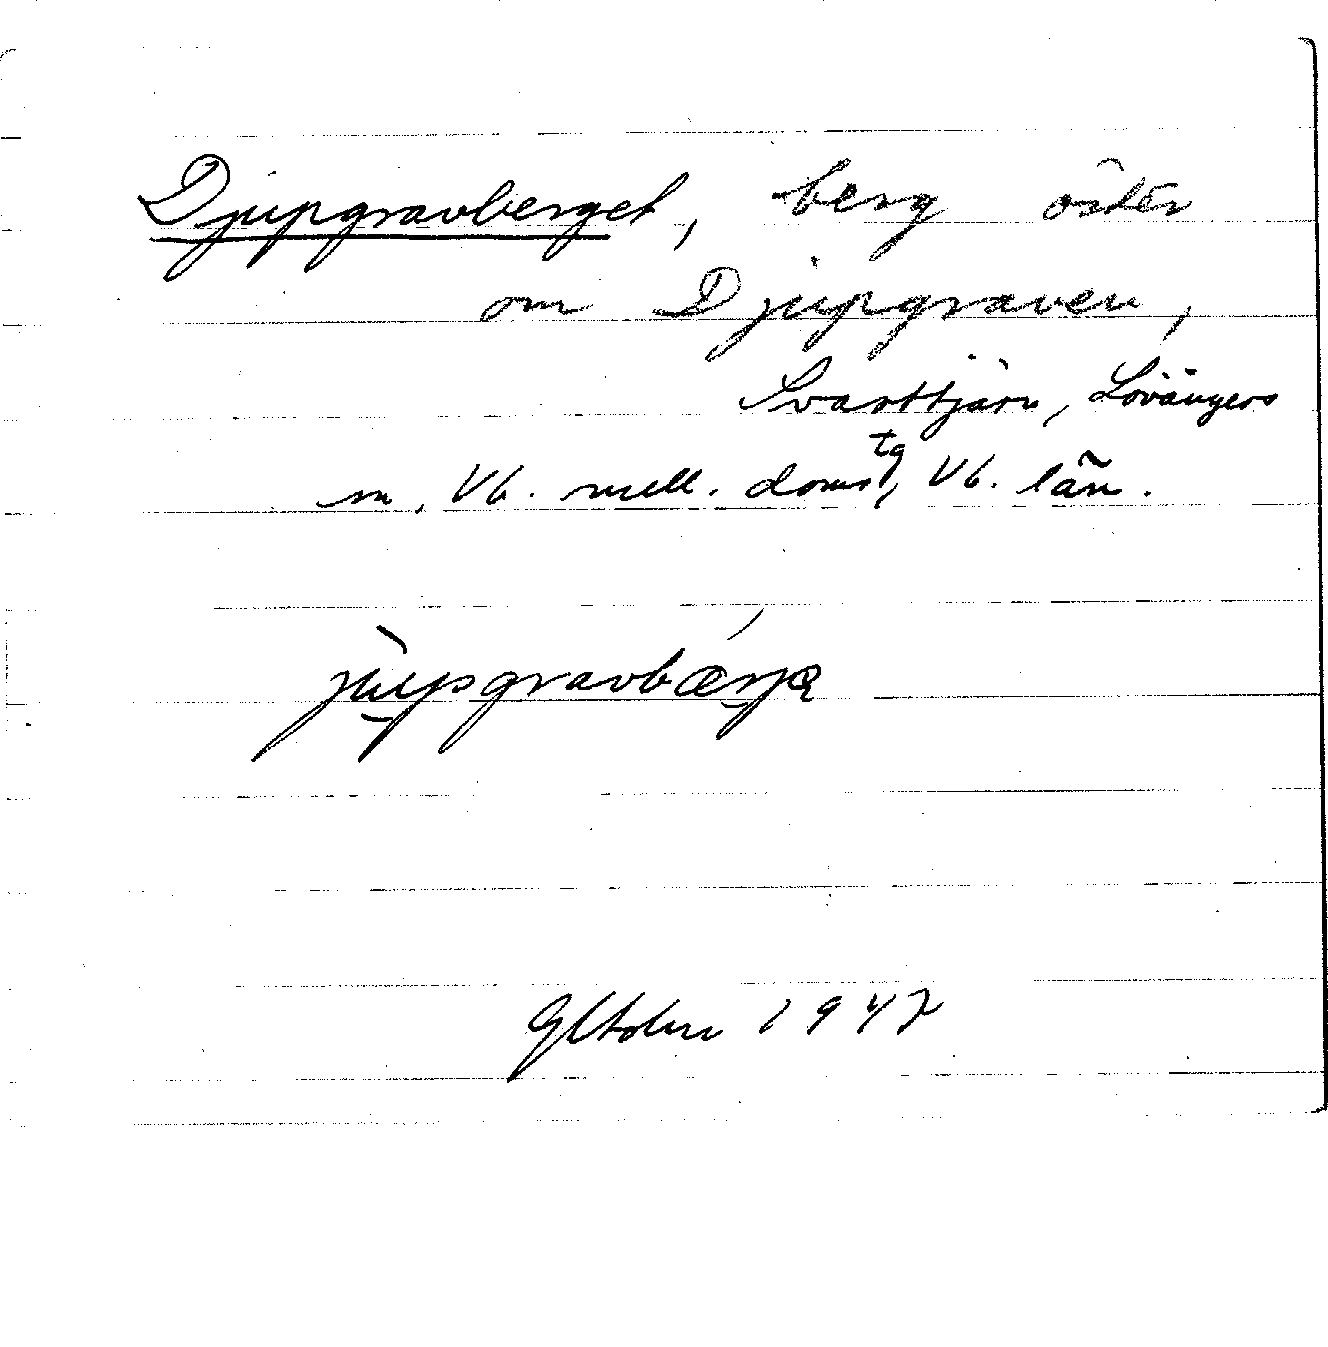 Djupgravberget, berg öster
om Djupgraven,
Svarttjärn, Lövångers
sn, Vb. mell. doms tg, Vb. län.
1947